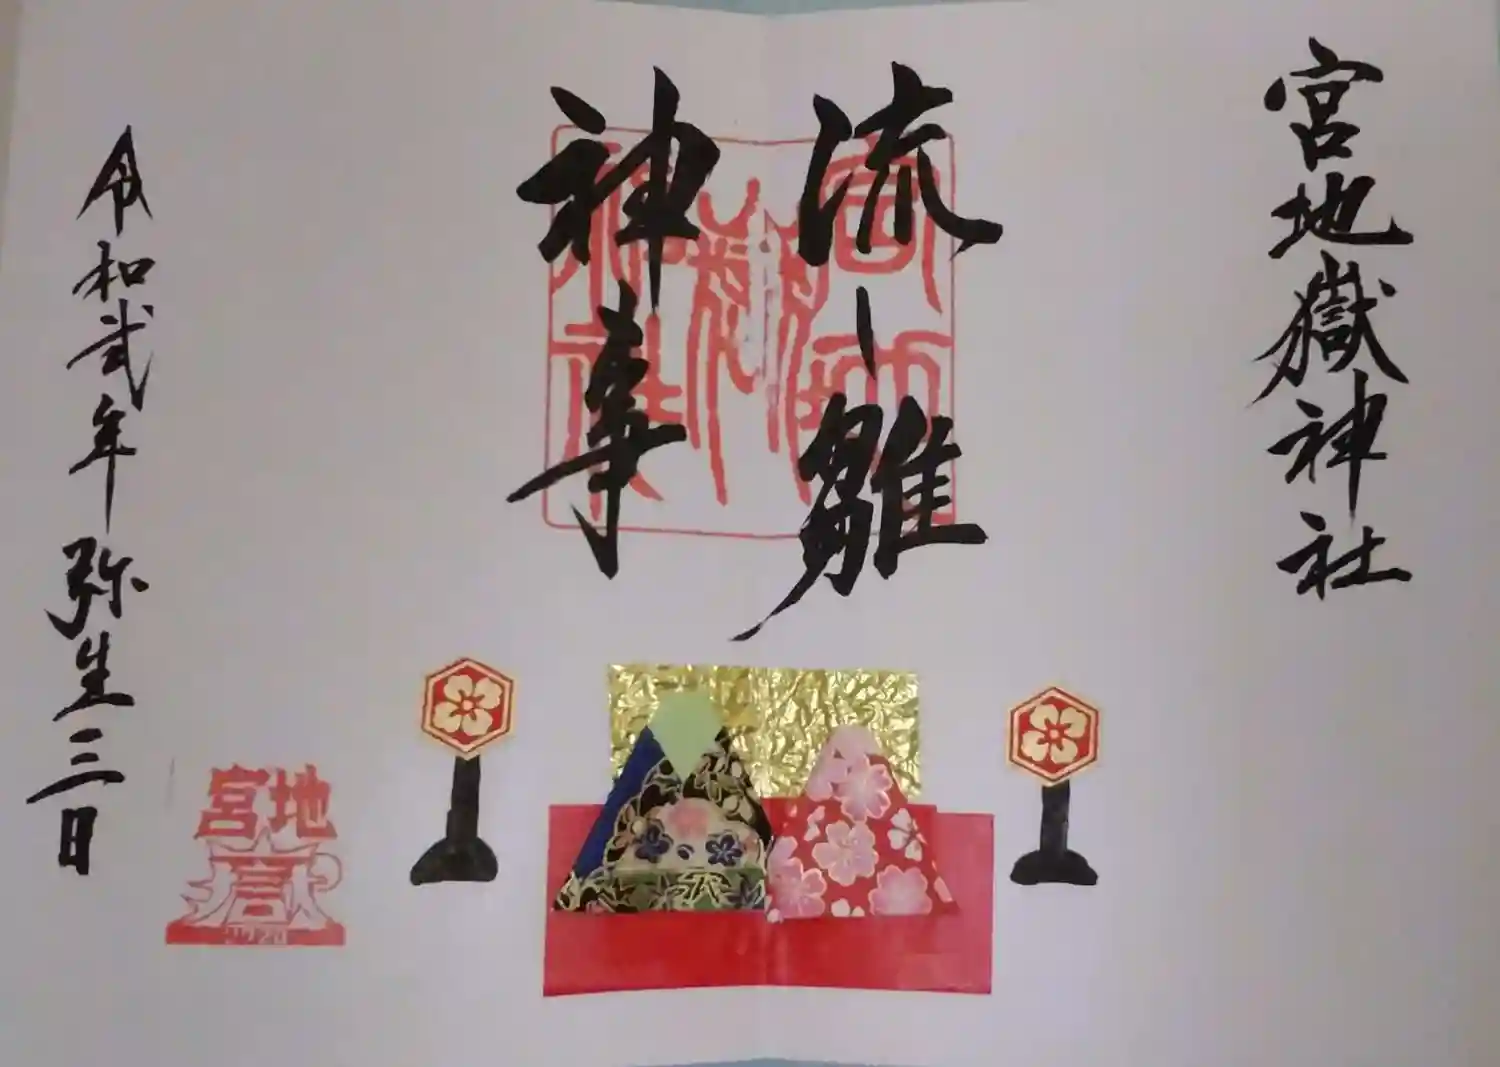 宮地嶽神社
流し雛
神事
令和弐年弥生三日
宮地
嶽